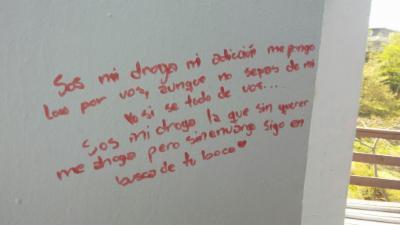 Sos mi droga mi adicción me pongo
loco por vos, aunque no sepas de mi
Yo si se todo de vos...
Sos mi droga la que sin querer
me droga pero sin envargo sigo en
busca de tu boca♥